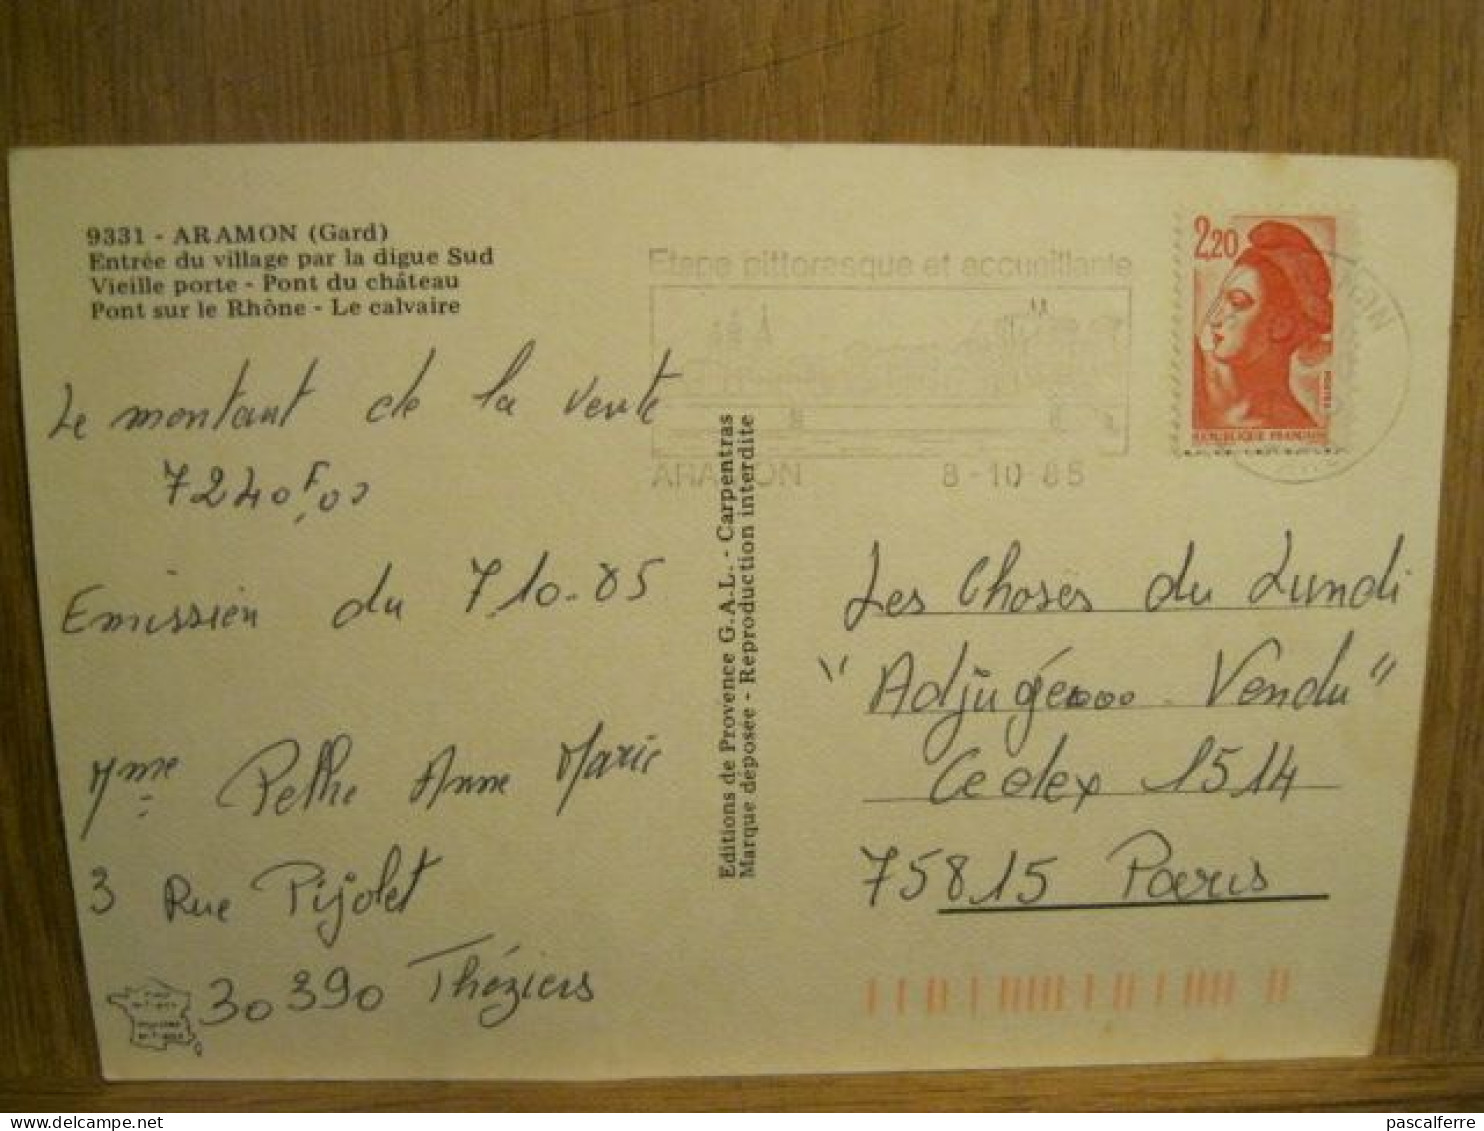 9331 - ARAMON (Gard)
Entrée du village par la digue Sud
Vieille porte - Pont du château
Pont sur le Rhône - Le calvaire
Le montant de la vente
7240F,00
Emission du 7.10.85
Mme Pelhe Anne Marie
3 Rue Pijolet
30390 Théziers
Editions de Provence G.A.L. - Carpentras
Marque deposee - Reproduction interdite
Etape pittoresque et accueillante
ARAMON 8-10 85
2,20
POSTES
REPUBLIQUE FRANÇAISE
Les Choses du Lundi
"Adjugé.... Vendu"
Cedex 1514
75815 Paris
pascalferre